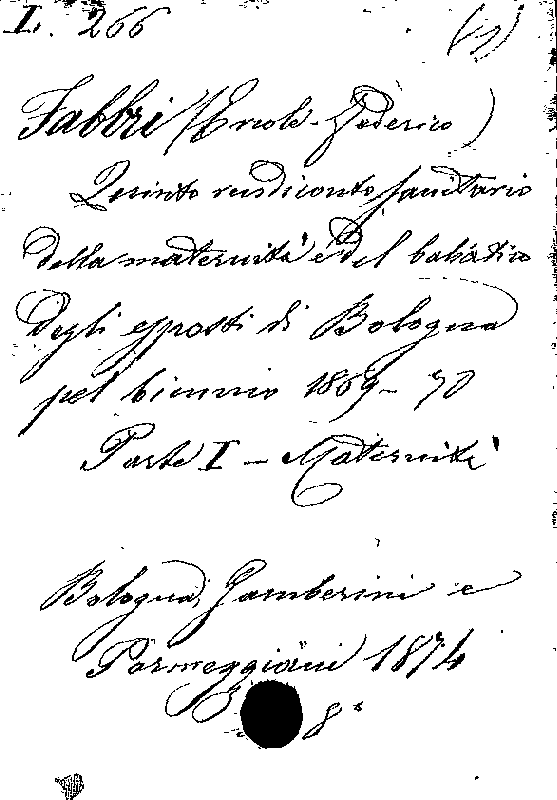 L. 266
Fabbri (Ercole-Federico)
Quinto rendiconto sanitario
della maternità e del baliatico
degli esposti di Bologna
pel biennio 1869-70
Parte I - Maternità
Bologna, Gamberini e
Parmeggiani 1874
8°